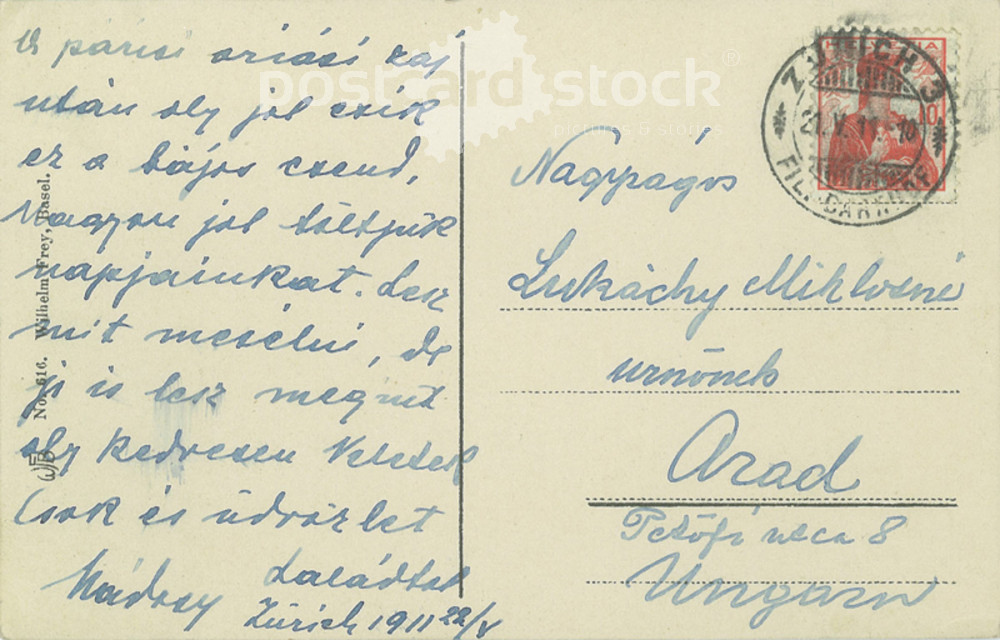 A párisi óriási zaj
után oly jól esik
ez a bájos csend,
Nagyon jól töltjük
napjainkat. Lesz
mit mesélni, de
jó is lesz megint
oly kedvesen Veletek
Csók és üdvözlet
Családtok
Zürich 1911 22/V
No. 616. Wilhelm Frey, Basel.
HELVETIA
10
ZÜRICH 3
21.V.11.-10
FIL. BAHNHOF
postcard stock®
pictures & stories
Nagyságos
Lukáchy Miklósné
urnőnek
Arad
Petőfi utca 8
Ungarn